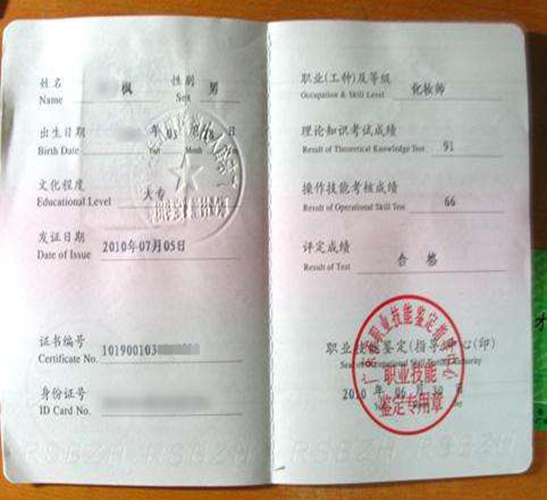 姓名 枫 性别 男
Name Sex
出生日期 年 03 月 18 日
Birth Date Year Month
文化程度 大专
Educational Level
发证日期 2010年07月05日
Date of Issue
证书编号 101900103
Certificate No.
身份证号
ID Card No.
RSBZH RSBZH RSBZH
职业(工种)及等级 化妆师
Occupation & Skill Level
理论知识考试成绩 91
Result of Theoretical Knowledge Test
操作技能考核成绩 66
Result of Operational Skill Test
评定成绩 合格
Result of Test
职业技能鉴定(指导)中心(印)
Seal of Occupational Skill Testing Authority
2010 年 06 月 30 日
职业技能鉴定指导中心
职业技能
鉴定专用章